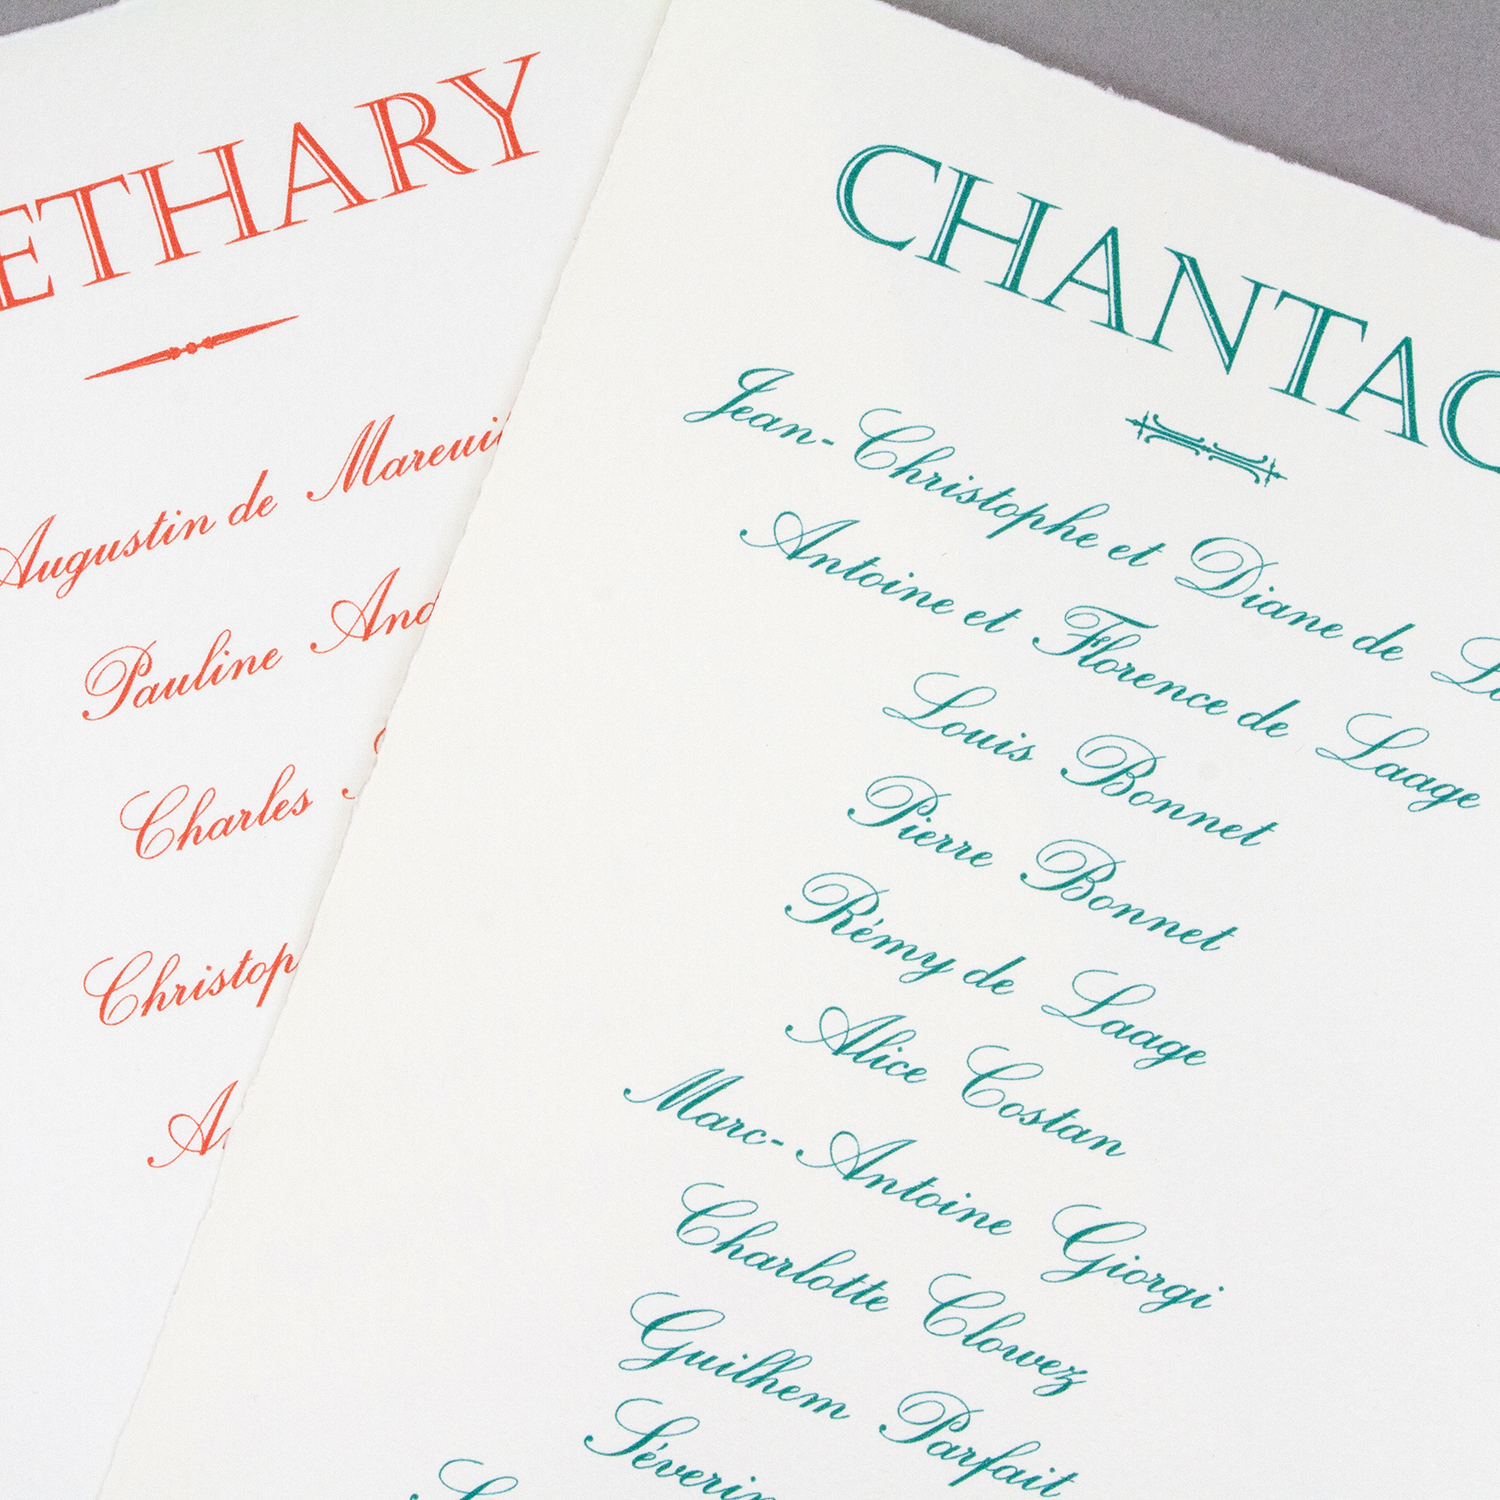 ETHARY
Augustin de Mareuil
Pauline
Charles
CHANTAC
Jean-Christophe et Diane de
Antoine et Florence de Laage
Louis Bonnet
Pierre Bonnet
Rémy de Laage
Alice Costan
Marc-Antoine Giorgi
Charlotte Clowez
Guilhem Parfait